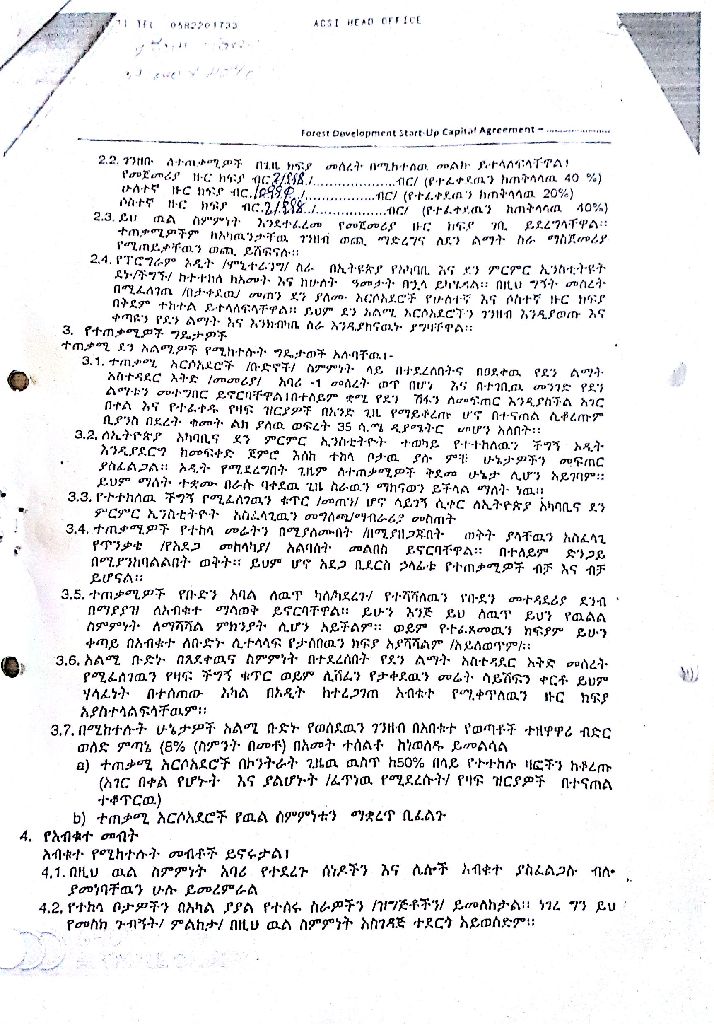 TEL 0582201733 ACSI HEAD OFFICE
Forest Development Start-Up Capital Agreement –
2.2. ገንዘቡ ለተጠቃሚዎች በጊዜ ክፍያ መሰረት በሚከተለዉ መልኩ ይተላለፍላቸዋል፤
የመጀመሪያ ዙር ክፍያ ብር /....................ብር/ (የተፈቀደዉን ከጠቅላላዉ 40 %)
ሁለተኛ ዙር ክፍያ ብር /....................ብር/ (የተፈቀደዉን ከጠቅላላዉ 20%)
ሶስተኛ ዙር ክፍያ ብር /....................ብር/ (የተፈቀደዉን ከጠቅላላዉ 40%)
2.3. ይህ ዉል ስምምነት እንደተፈረመ የመጀመሪያ ዙር ክፍያ ገቢ ይደረግላቸዋል።
ተጠቃሚዎችም ከአካዉንታቸዉ ገንዘብ ወጪ ማድረግና ለደን ልማት ስራ ማስጀመሪያ
የሚጠይቃቸዉን ወጪ ይሸፍናሉ።
2.4. የፕሮግራም ኦዲት /ሞኒተሪንግ/ ስራ በኢትዮጵያ የአካባቢ እና ደን ምርምር ኢንስቲትዩት
ደኑ/ችግኙ/ ከተተከለ ከአመት እና ከሁለት ዓመታት በኋላ ይካሄዳል። በዚህ ግኝት መሰረት
በሚፈለገዉ /በታቀደዉ/ መጠን ደን ያለሙ አርሶአደሮች የሁለተኛ እና ሶስተኛ ዙር ክፍያ
በቅደም ተከተል ይተላለፍላቸዋል። ይህም ደን አልሚ አርሶአደሮችን ገንዘብ እንዲያወጡ እና
ቀጣዩን የደን ልማት እና እንክብካቤ ስራ እንዲያከናዉኑ ያግዛቸዋል።
3. የተጠቃሚዎች ግዴታዎች
ተጠቃሚ ደን አልሚዎች የሚከተሉት ግዴታወች አሉባቸዉ፤-
3.1. ተጠቃሚ አርሶአደሮች /ቡድኖች/ ስምምነት ላይ በተደረሰበትና በፀደቀዉ የደን ልማት
አስተዳደር እትድ /መመሪያ/ አባሪ -1 መሰረት ወጥ በሆነ እና በተገቢዉ መንገድ የደን
ልማቱን መተግበር ይኖርባቸዋል፤በተለይም ቋሚ የደን ሽፋን ለመፍጠር እንዲያስችል አገር
በቀል እና የተፈቀዱ የዛፍ ዝርያዎች በአንድ ጊዜ የማይቆረጡ ሆኖ በተናጠል ሲቆረጡም
ቢያንስ በደረት ቁመት ልክ ያለዉ ወፍረት 35 ሳ.ሜ ዲያሜትር መሆን አለበት።
3.2. ለኢትዮጵያ አካባቢና ደን ምርምር ኢንስቲትዮት ተወካይ የተተከለዉን ችግኝ ኦዲት
እንዲያደርግ ከመፍቀድ ጀምሮ እስከ ተከላ ቦታዉ ያሉ ምቹ ሁኔታዎችን መፍጠር
ያስፈልጋል። ኦዲት የሚደረግበት ጊዜም ለተጠቃሚዎች ቅደመ ሁኔታ ሊሆን አይገባም።
ይህም ማለት ተቋሙ በራሱ ባቀደዉ ጊዜ ስራዉን ማከናወን ይችላል ማለት ነዉ።
3.3. የተተከለዉ ችግኝ የሚፈለገዉን ቁጥር /መጠን/ ሆኖ ሳይገኝ ሲቀር ለኢትዮጵያ አካባቢና ደን
ምርምር ኢንስቲትዮት አስፈላጊዉን መግለጫ/ማብራሪያ መስጠት
3.4. ተጠቃሚዎች የተከላ መሬትን በሚያለሙበት /በሚያዘጋጁበት ወቅት ያላቸዉን አስፈላጊ
የጥንቃቄ /የአደጋ መከላከያ/ አልባሳት መልበስ ይኖርባቸዋል። በተለይም ድንጋይ
በሚያንከባልልበት ወቅት። ይህም ሆኖ አደጋ ቢደርስ ኃላፊቱ የተጠቃሚዎች ብቻ እና ብቻ
ይሆናል።
3.5. ተጠቃሚዎች የቡድን አባል ለዉጥ ካለ/ካደረጉ/ የተሻሻለዉን የቡድን መተዳደሪያ ደንብ
በማያያዝ ለአብቁተ ማሳወቅ ይኖርባቸዋል። ይሁን እንጅ ይህ ለዉጥ ይህን የዉልል
ስምምነት ለማሻሻል ምክንያት ሊሆን አይችልም። ወይም የተፈጸመዉን ክፍያም ይሁን
ቀጣይ በአብቁተ ለቡድኑ ሊተላላፍ የታሰበዉን ክፍያ አያሻሽልም /አይለወጥም/።
3.6. አልሚ ቡድኑ በጸደቀዉና ስምምነት በተደረሰበት የደን ልማት አስተዳደር እቅድ መሰረት
የሚፈለገዉን የዛፍ ችግኝ ቁጥር ወይም ሊሸፈን የታቀደዉን መሬት ሳይሸፍን ቀርቶ ይህም
ሃላፊነት በተሰጠዉ አካል በኦዲት ከተረጋገጠ አብቁተ የሚቀጥለዉን ዙር ክፍያ
አያስተላልፍላቸዉም።
3.7. በሚከተሉት ሁኔታዎች አልሚ ቡድኑ የወሰደዉን ገንዘብ በአበቁተ የወጣቶች ተዘዋዋሪ ብድር
ወለድ ምጣኔ (8% (ስምንት በመቶ) በአመት ተሰልቶ ከነወለዱ ይመልሳል
a) ተጠቃሚ አርሶአደሮች በኮንትራት ጊዜዉ ዉስጥ ከ50% በላይ የተተከሉ ዛፎችን ከቆረጡ
(አገር በቀል የሆኑት እና ያልሆኑት /ፈጥነዉ የሚደረሱት/ የዛፍ ዝርያዎች በተናጠል
ተቆጥርዉ)
b) ተጠቃሚ አርሶአደሮች የዉል ስምምነቱን ማቋረጥ ቢፈልጉ
4. የአብቁተ መብት
አብቁተ የሚከተሉት መብቶች ይኖሩታል፤
4.1. በዚህ ዉል ስምምነት አባሪ የተደረጉ ሰነዶችን እና ሌሎች አብቁተ ያስፈልጋሉ ብሎ
ያመነባቸዉን ሁሉ ይመረምራል
4.2. የተከላ ቦታዎችን በአካል ያያል የተሰሩ ስራዎችን /ዝግጅቶችን/ ይመለከታል። ነገረ ግን ይህ
የመስክ ጉብኝት/ ምልከታ/ በዚህ ዉል ስምምነት አስገዳጅ ተደርጎ አይወሰድም።